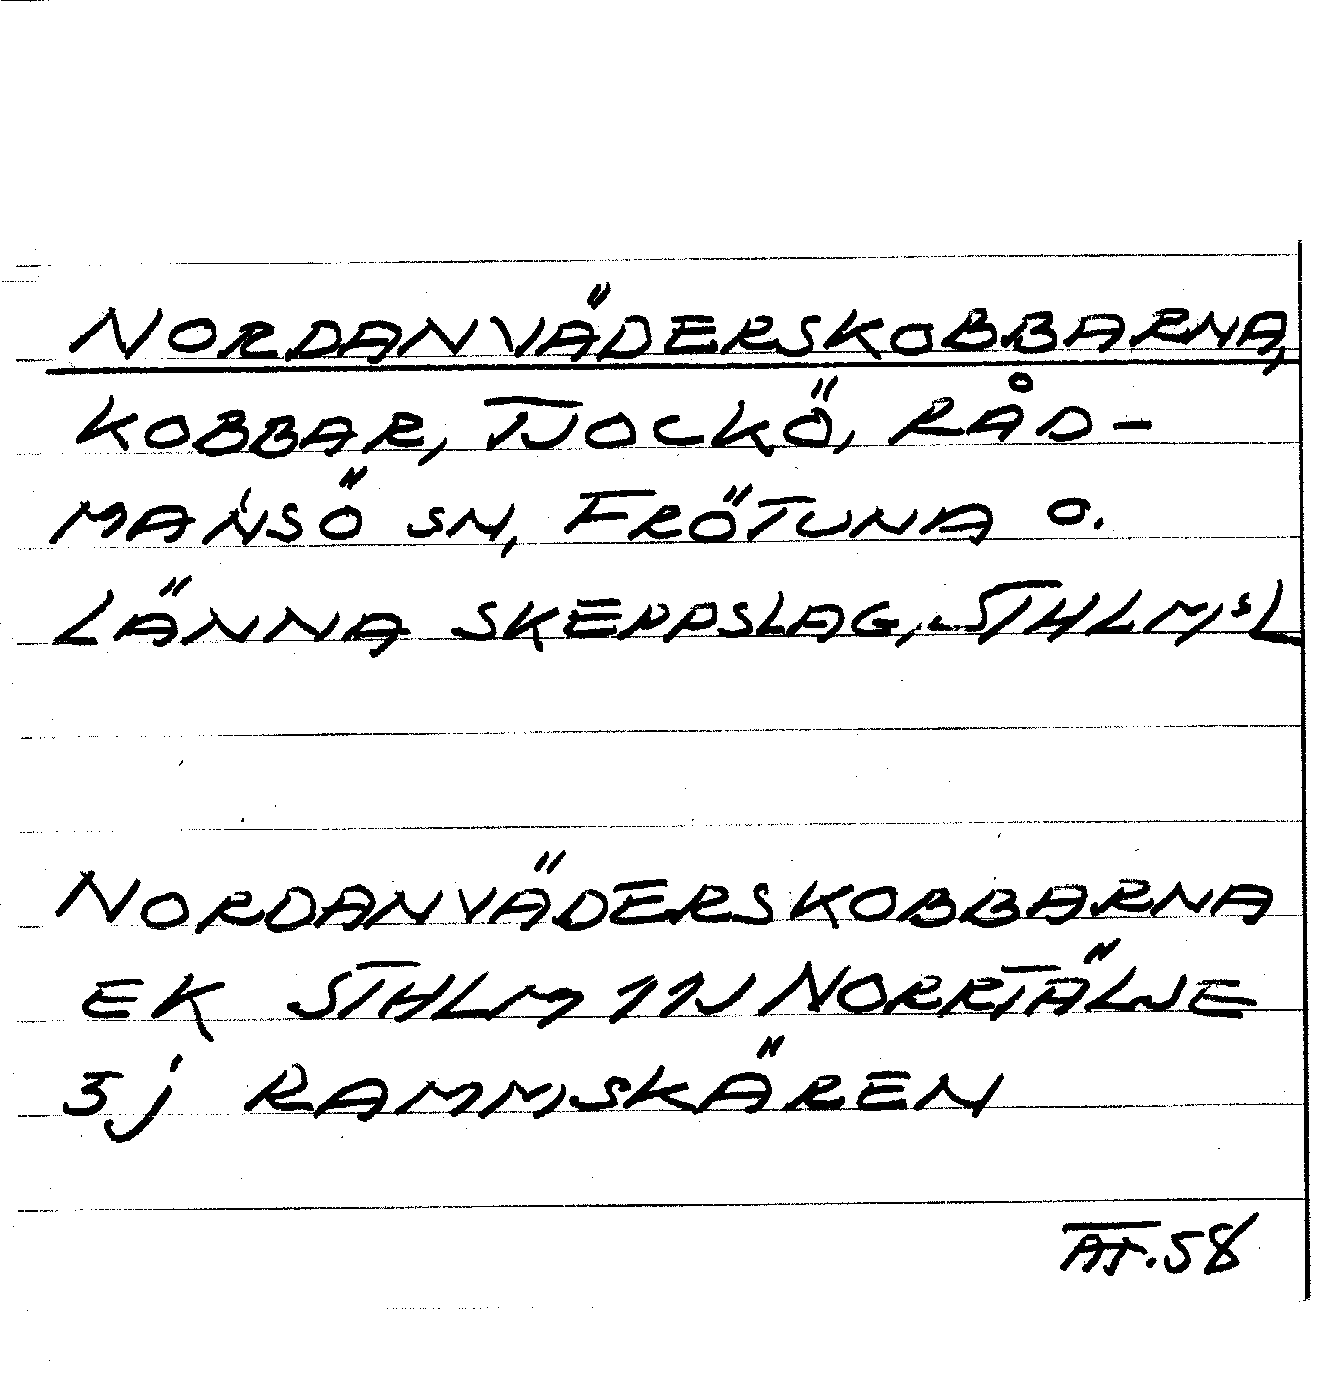 NORDANVÄDERSKOBBARNA,
KOBBAR, TJOCKÖ, RÅD-
MANSÖ SN, FRÖTUNA O.
LÄNNA SKEPPSLAG, STHLMSL
NORDANVÄDERSKOBBARNA
EK STHLM 11J NORRTÄLJE
5j RAMMSKÄREN
AT.58